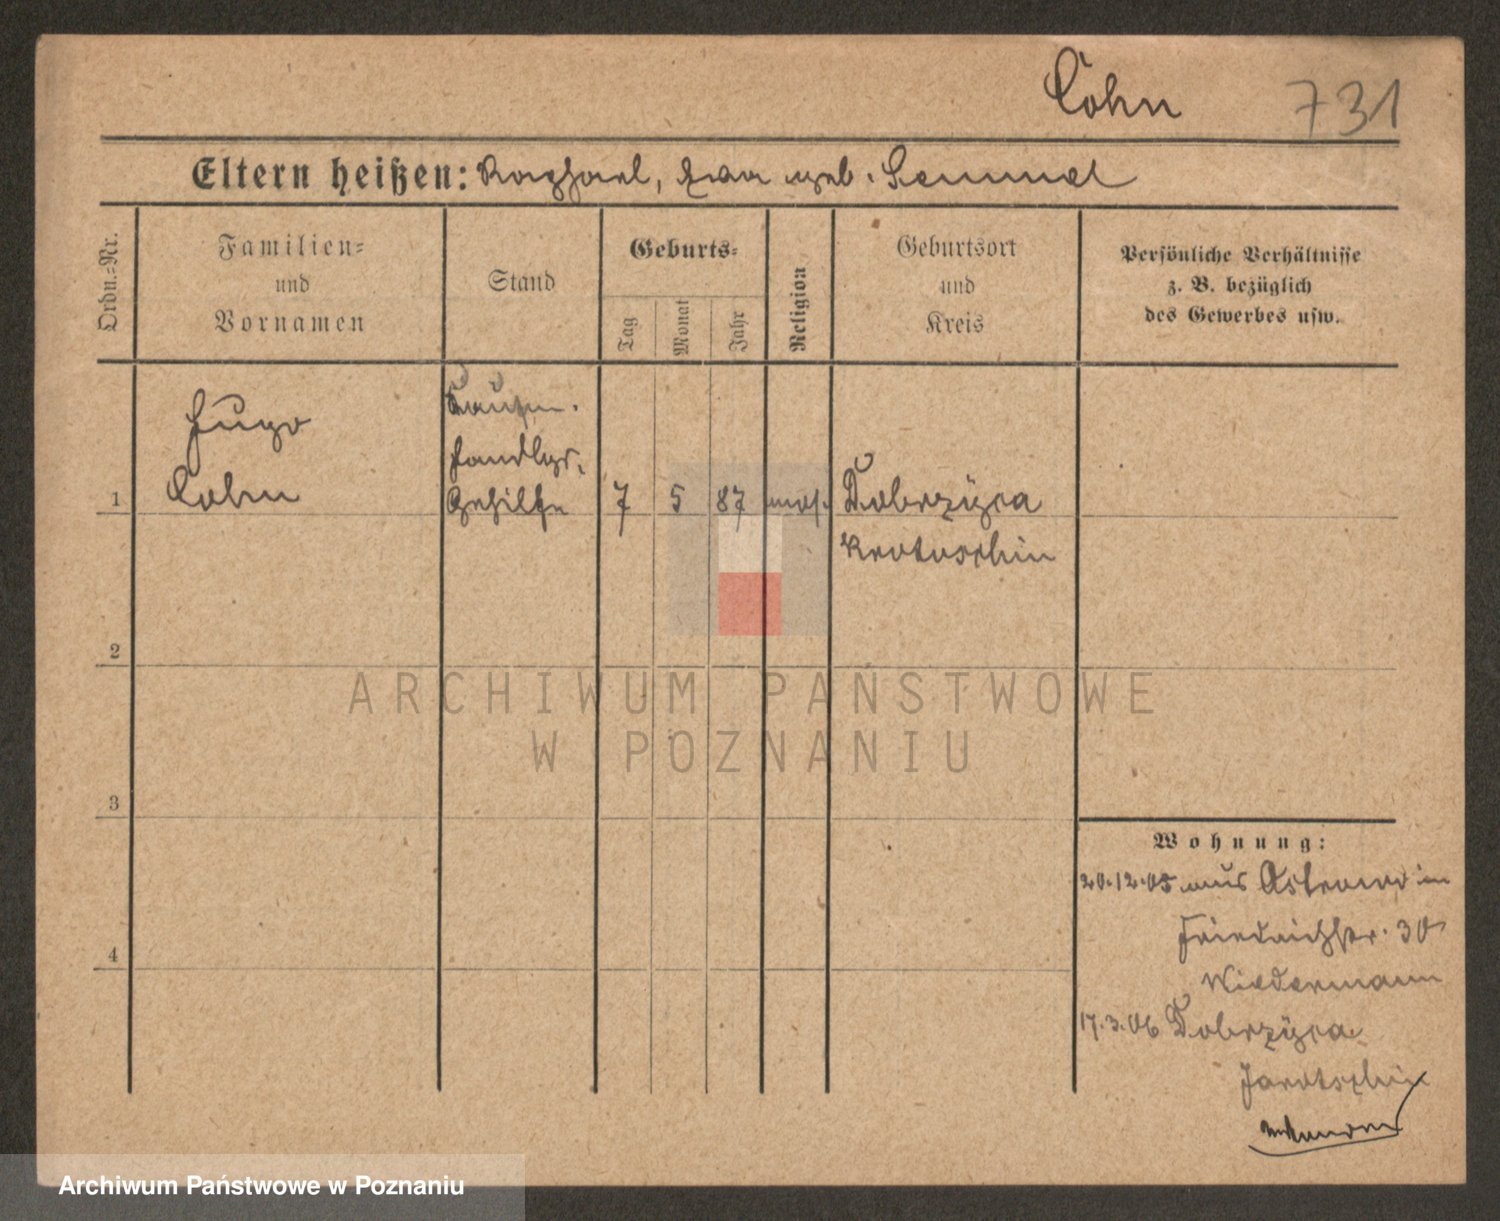 Cohn 731
Eltern heißen: Raphael, Eva geb.
Ordn.=Nr.
Familien=
und
Vornamen
Stand
Geburts=
Tag
Monat
Jahr
Religion
Geburtsort
und
Kreis
Persönliche Verhältnisse
z. B. bezüglich
des Gewerbes usw.
Hugo
Cohn
Kaufm.
Handlgs.
Gehilfe
1 7 5 87 mos. Dobrzyca
Krotoschin
2
ARCHIWUM PAŃSTWOWE
W POZNANIU
3
Wohnung:
20.12.05 aus Ostrowo in
Friedrichstr. 30
Wiedermann
4
17.3.06 Dobrzyca
Jarotschin
Archiwum Państwowe w Poznaniu